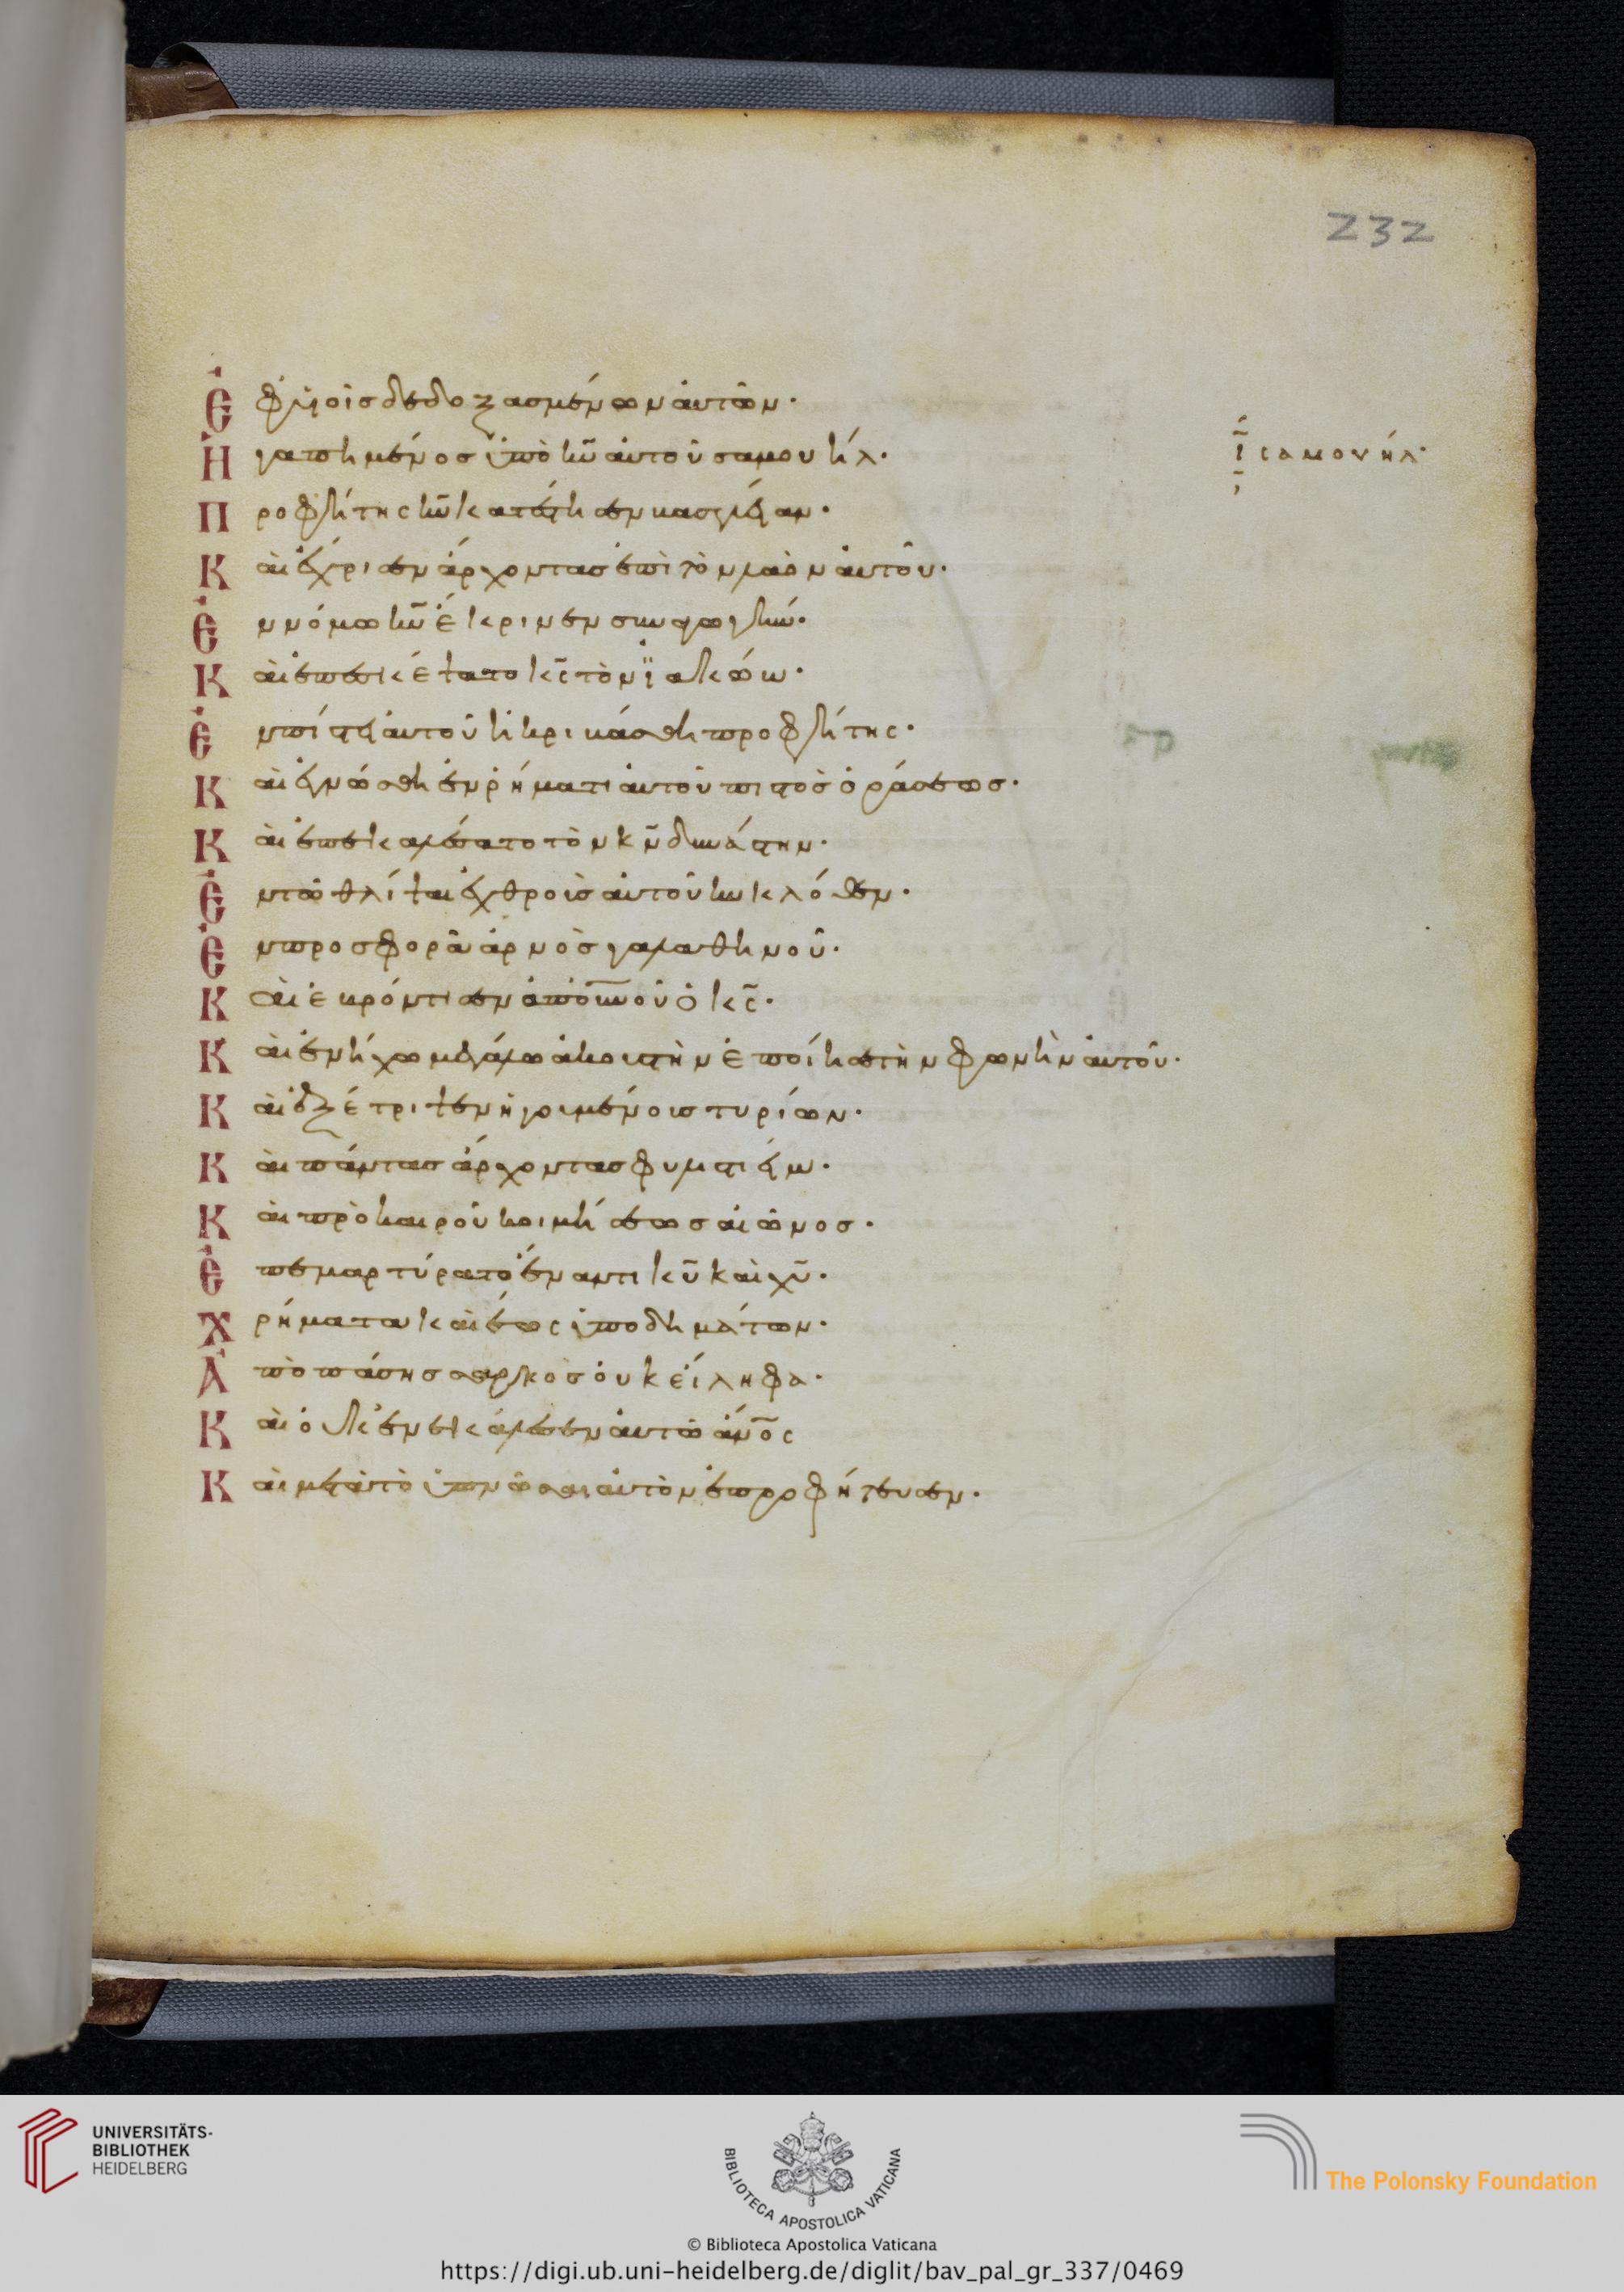 232
Ἐφ υἱοῖς δεδοξασμένων αὐτῶν·
Ἠγαπημένος ὑπὸ κ̅υ̅ αὐτοῦ σαμουήλ·
ἱ σαμουήλ·
Προφήτης κ̅υ̅ κατέστησεν βασιλείαν·
Καὶ ἔχρισεν ἄρχοντας ἐπὶ τὸν λαὸν αὐτοῦ·
Ἐν νόμω κ̅υ̅ ἔκρινεν συναγωγήν·
Καὶ ἐπεσκέψατο κ̅ς̅ τὸν ϊακώβ·
Ἐν πίστει αὐτοῦ ἠκριβάσθη προφήτης·
Καὶ ἐγνώσθη ἐν ῥήματι αὐτοῦ πιστὸς ὁράσεως·
Καὶ ἐπεκαλέσατο τὸν κ̅ν̅ δυνάστην·
Ἐν τῶ θλίψαι ἐχθροὺς αὐτοῦ κυκλόθεν·
Ἐν προσφορᾶ ἀρνὸς γαλαθηνοῦ·
Καὶ ἐβρόντησεν ἀπὸ ο̅υ̅ν̅ο̅ῦ ὁ κ̅ς̅·
Καὶ ἐν ἤχω μεγάλω ἀκουστὴν ἐποίησε τὴν φωνὴν αὐτοῦ·
Καὶ ἐξέτριψεν ἡγουμένους τυρίων·
Καὶ πάντας ἄρχοντας φυλιστιείμ·
Καὶ πρὸ καιροῦ κοιμήσεως αἰῶνος·
Ἐπεμαρτύρατο ἔναντι κ̅υ̅ καὶ χ̅υ̅·
Χρήματα καὶ ἕως ὑποδημάτων·
Ἀπὸ πάσης σαρκὸς οὐκ εἴληφα·
Καὶ οὐκ ἐνεκάλεσεν αὐτῶ ἄ̅ν̅ο̅ς̅
Καὶ μετὰ τὸ ὑπνῶσαι αὐτὸν ἐπροφήτευσεν·
UNIVERSITÄTS-
BIBLIOTHEK
HEIDELBERG
BIBLIOTECA APOSTOLICA VATICANA
The Polonsky Foundation
© Biblioteca Apostolica Vaticana
https://digi.ub.uni-heidelberg.de/diglit/bav_pal_gr_337/0469